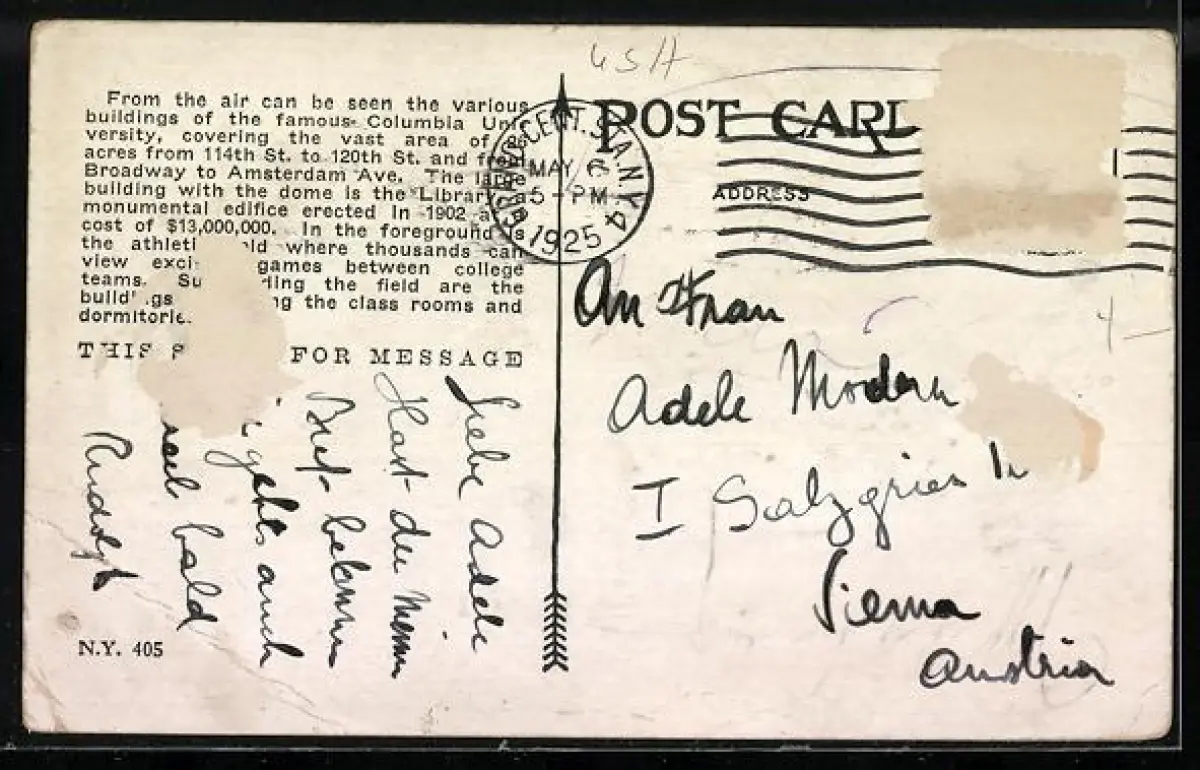 USA
From the air can be seen the various
buildings of the famous Columbia Uni-
versity, covering the vast area of 26
acres from 114th St. to 120th St. and from
Broadway to Amsterdam Ave. The large
building with the dome is the Library, a
monumental edifice erected in 1902 at a
cost of $13,000,000. In the foreground is
the athleti ld where thousands can
view exci games between college
teams. Su ding the field are the
build gs g the class rooms and
dormitorie.
THIS FOR MESSAGE
Liebe Adele
Hast du
Brief
geht's auch
bald
N.Y. 405
POST CARD
ADDRESS
CENT. STA. N.Y. 4
MAY 6
5-PM
1925
An Frau
Adele Modern
I Salzgries
Vienna
Austria